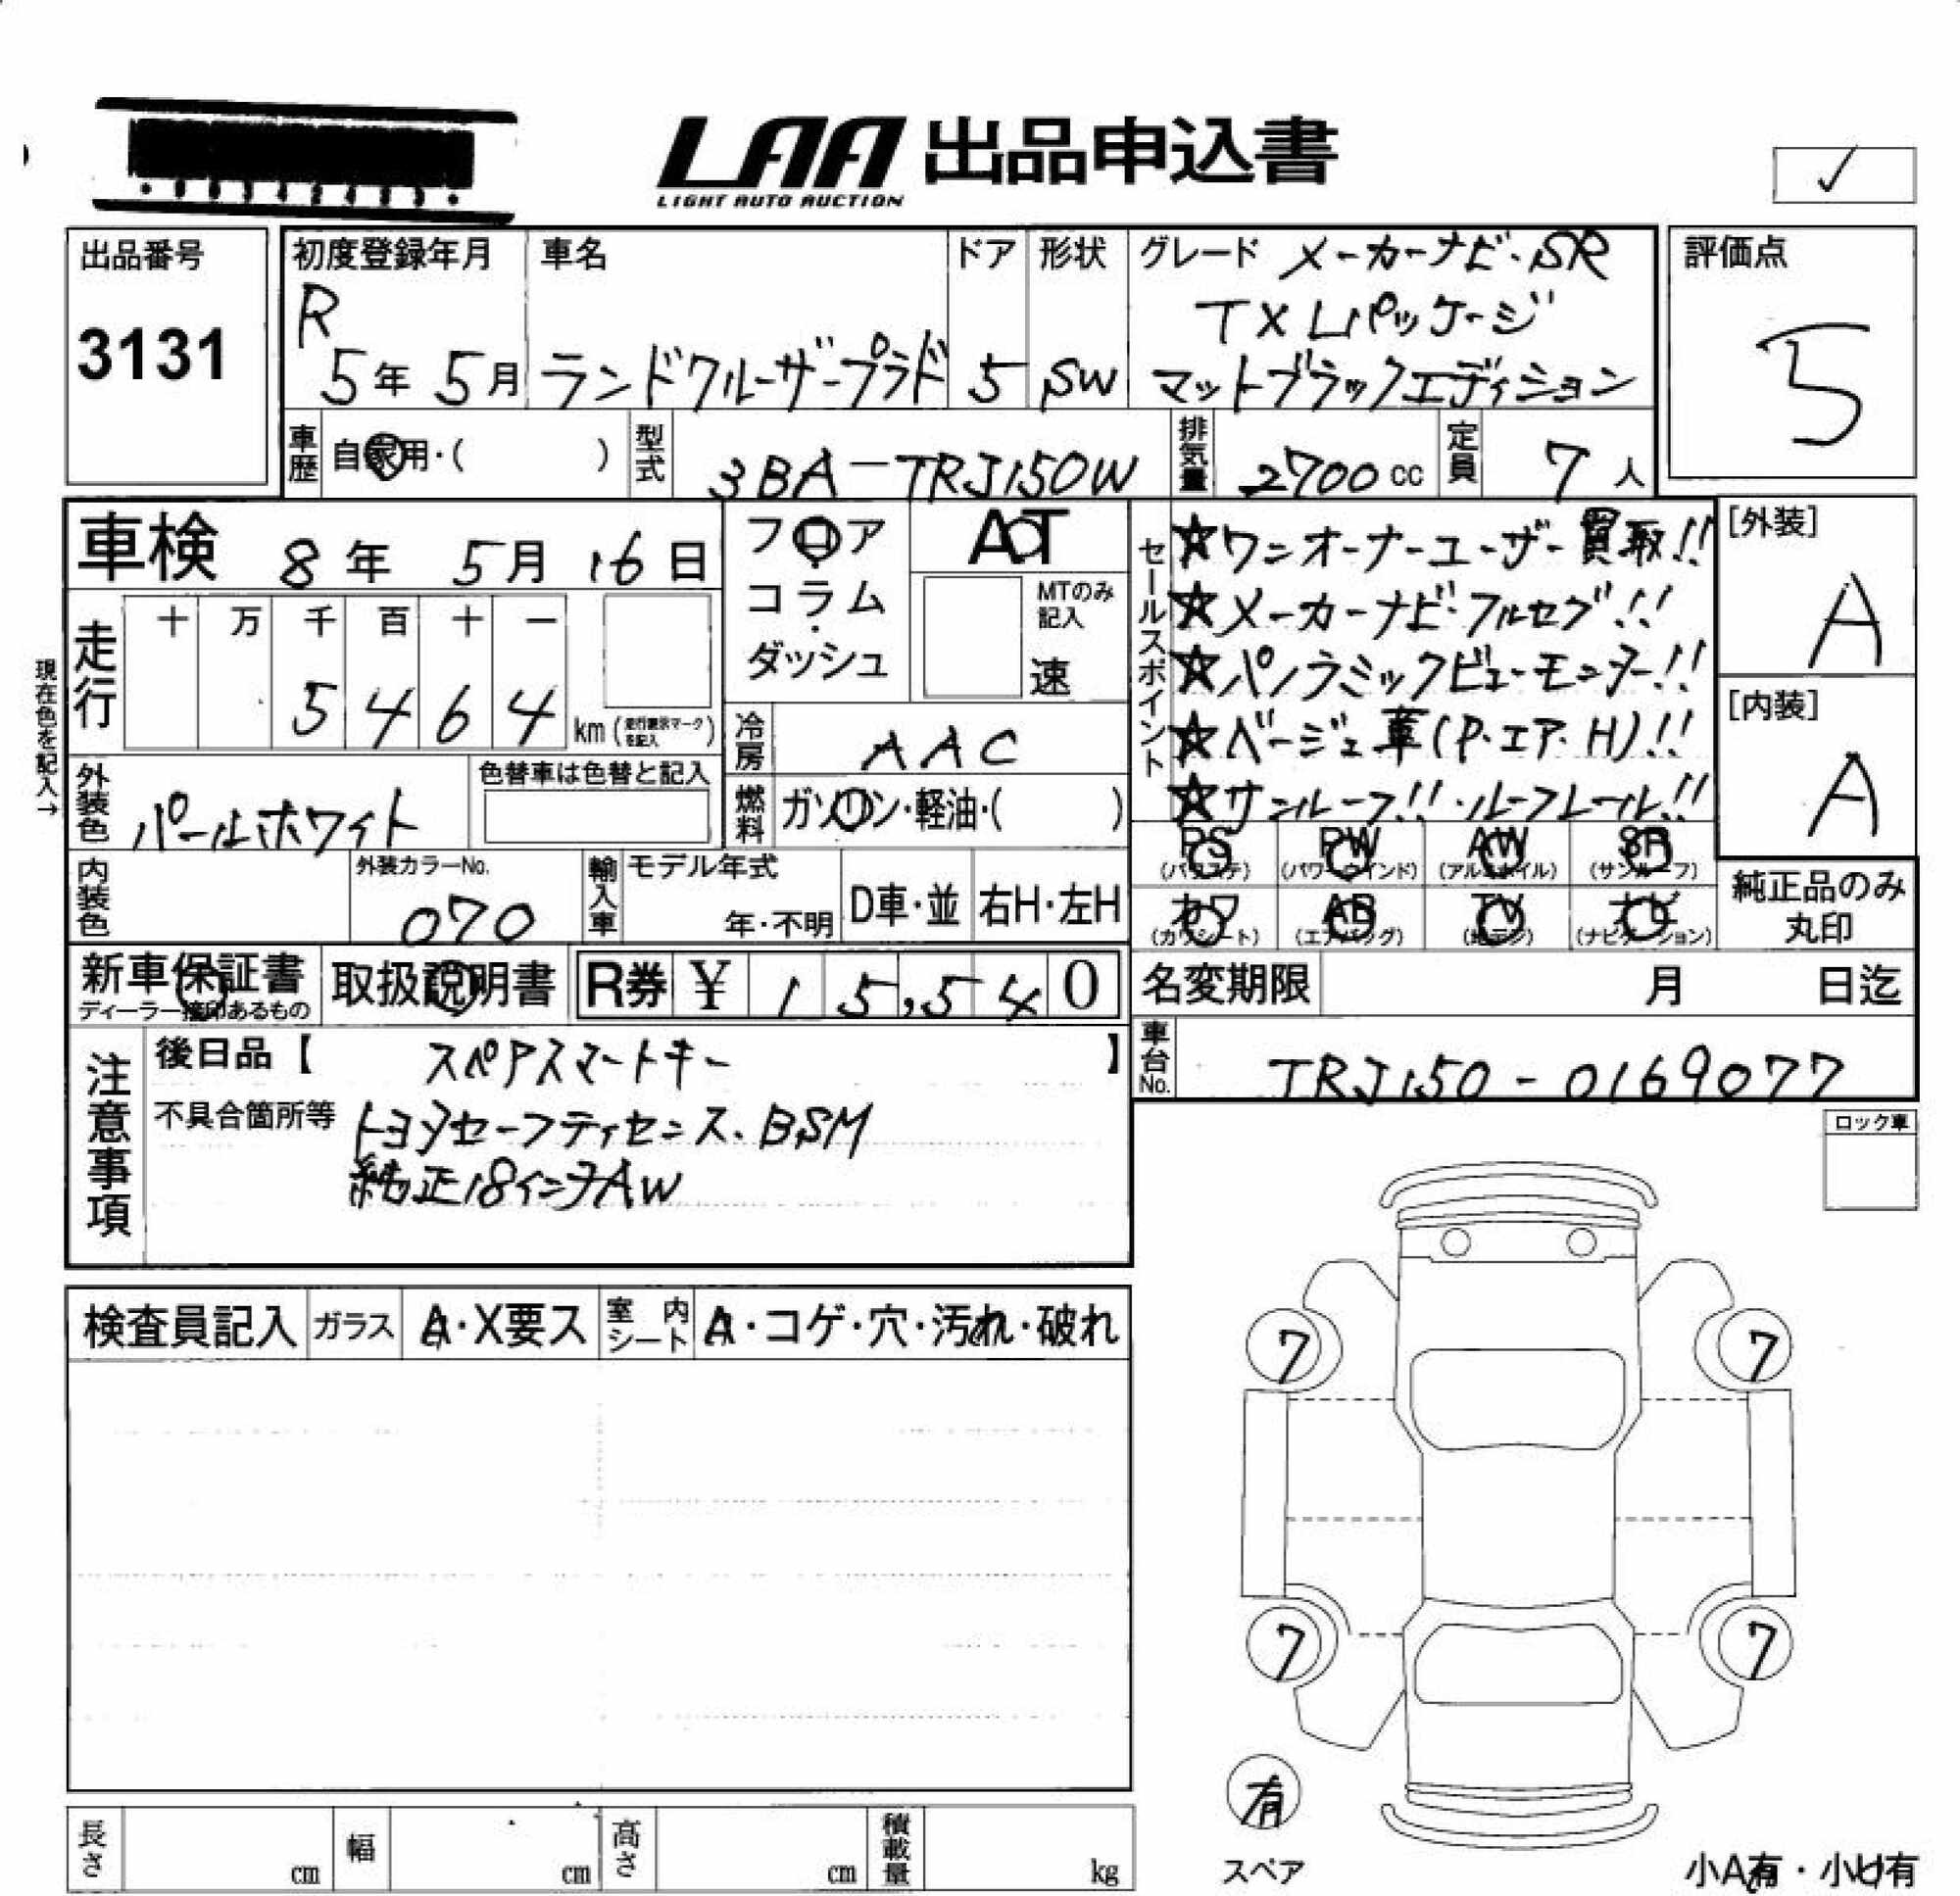 LAA 出品申込書
LIGHT AUTO AUCTION
✓
出品番号
3131
初度登録年月
R
5年 5月
車名
ランドクルーザープラド
ドア
5
形状
SW
グレード メーカーナビ・SR
TX Lパッケージ
マットブラックエディション
評価点
5
車歴
自家用・( )
型式
3BA-TRJ150W
排気量
2700 cc
定員
7 人
車検 8年 5月 16日
フロア
コラム・
ダッシュ
AT
MTのみ
記入
速
セールスポイント
☆ワンオーナーユーザー買取!!
☆メーカーナビ・フルセグ!!
☆パノラミックビューモニター!!
☆ベージュ革(P.エア.H)!!
☆サンルーフ!!・ルーフレール!!
[外装]
A
[内装]
A
現在色を記入→
走行
十 万 千 百 十 一
5 4 6 4 km (走行表示マークを記入)
冷房
AAC
外装色
パールホワイト
色替車は色替と記入
燃料
ガソリン・軽油・( )
PS (パワステ)
PW (パワーウインド)
AW (アルミホイル)
SR (サンルーフ)
カワ (カワシート)
AB (エアバッグ)
TV (地デジ)
ナビ (ナビゲーション)
純正品のみ
丸印
内装色
外装カラーNo.
070
輸入車
モデル年式
年・不明
D車・並
右H・左H
新車保証書
ディーラー捺印あるもの
取扱説明書
R券 ¥ 15,540
名変期限 月 日迄
車台No.
TRJ150-0169077
注意事項
後日品【 スペアスマートキー 】
不具合箇所等 トヨタセーフティセンス、BSM
純正18インチAW
ロック車
検査員記入
ガラス
A・X要ス
室内シート
A・コゲ・穴・汚れ・破れ
7
7
7
7
有
スペア
長さ cm
幅 cm
高さ cm
積載量 kg
小A有・小U有